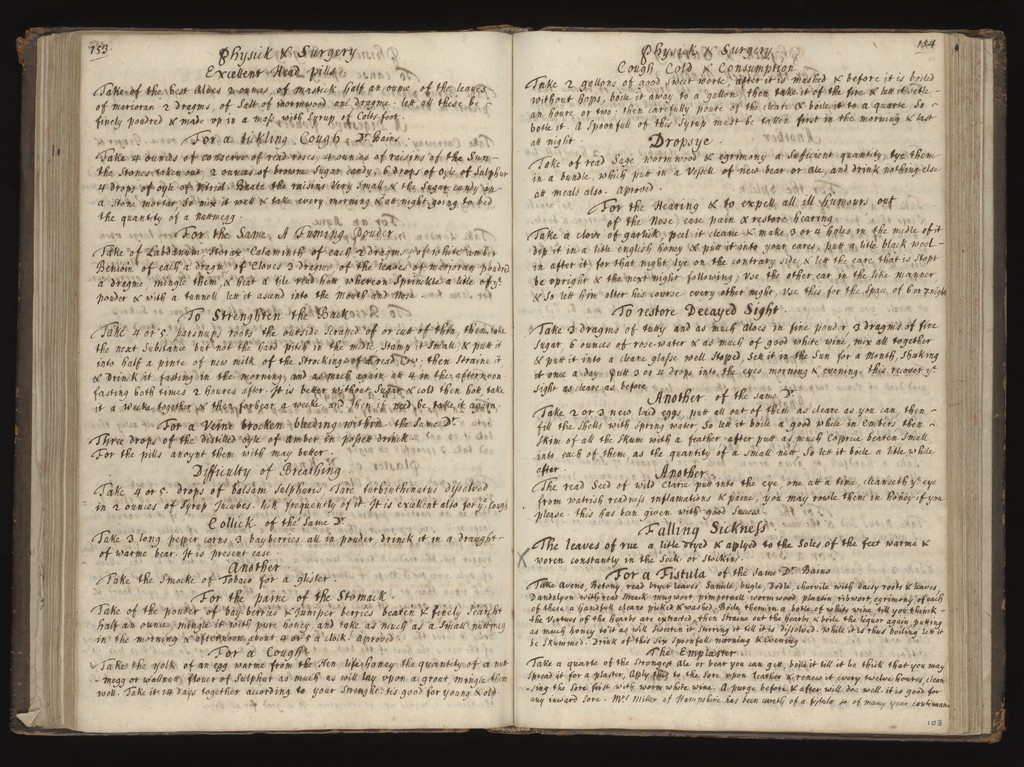 153.
Physick & Surgery
Excellent Head pills
Take of the best Aloes 2 ounces of mastick half an ounce of the leaves
of marioran 2 dragms, of Salt of wormwood one dragme. lett all these be
finely poudred & made up in a mass with Syrup of Colts foot.
For a tickling Cough Dr. Bains
Take 4 ounces of conserve of read roses, 4 ounces of raisins of the Sun
the Stones taken out, 2 ounces of browne Sugar candy, 6 drops of oyle of Sulphur
4 drops of oyle of vitriol. Beate the raisins very Small & the Sugar candy on
a Stone mortar So mix it well & take every morning & att night going to bed
the quantity of a nuttmegg.
For the Same, A Fuming Pouder
Take of Labdanum, Storax Calaminth of each 2 dragms, of white amber
Benioin of each a dragm, of Cloves 3 dragms of the leaves of marioran poudrd
a dragme, mingle them, & heat a tile read hott whereon Sprinkle a litle of ye
pouder & with a tunnell lett it asend into the Mouth and Nose
To Strenghten the Back
Take 4 or 5 parsnups roots the outside Scraped of or cutt of thin, then take
the next Substance but not the hard pitch in the midle Stamp it Small & putt it
into half a pinte of new milk of the Strockings of a read Cow, then Straine it
& Drink it fasting in the morning, and as much again att 4 in the afternoon
fasting both times 2 houres after. It is better without Sugar & cold then hott take
it a weeke together & then forbear a weeke and then if need be take it again
For a Veine brocken bleeding within the Same Dr.
Three drops of the distilled oyle of amber in possett drink
For the pills anoynt them with may better
Difficulty of Breathing
Take 4 or 5 drops of balsam Sulphuris Tare turbinthinatus dissolved
in 2 ounces of Syrup Incubes. lick frequently of it. It is excellent also for ye Cough
Collick of the Same Dr.
Take 3 long pepper corns 3 bayberries all in pouder, drinck it in a draught
of warme bear. It is present ease
Another
Take the Smocke of Tobaco for a glister.
For the paine of the Stomack
Take of the pouder of bay berries & Juniper berries beaten & finely Searcht
half an ounce, mingle it with pure honey and take as much as a Small nuttmeg
in the morning & afternoon about 4 or 5 a clock. aproved
For a Cough
Take the yolk of an egg warme from the Hen, life honey the quantity of a nut
megg or wallnutt, flower of Sulphur as much as will lay upon a groat, mingle them
well. Take it 14 days together according to your Strenght. tis good for young & old
154
Physick & Surgery
Cough Cold & Consumption
Take 2 gallons of good sweet worte, after it is mashed & before it is boiled
without hops, boile it away to a gallon, then take it of the fire & lett it setle
an houre or two, then carefully poure of the cleare & boile it to a quarte. So
botle it. A Spoonfull of this Syrup must be taken first in the morning & last
att night
Dropsye
Take of read Sage wormwood & egrimony a Suficient quantity, tye them
in a bundle, which putt in a Vessell of new bear or Ale, and drink nothing else
att meals also. aproved
For the Hearing & to expell all ill humours out
of the Nose ease pain & restore hearing
Take a clove of garlick, peel it cleane & make 3 or 4 holes in the midle of it
dip it in a litle english honey & putt it into your eares, putt a litle black wool
in after it, for that night, lye on the contrary side, & lett the eare that is Stopt
be upright & the next night following, Use the other ear in the like manner
& So lett him alter his course every other night, Use this for the Space of 6 or 7 nights
To restore Decayed Sight
Take 3 dragms of tutty and as much Aloes in fine pouder 3 dragms of fine
Sugar, 6 ounces of rose water & as much of good white wine, mix all together
& putt it into a cleane glasse well Stoped, Sett it in the Sun for a Month, Shaking
it once a day. putt 3 or 4 drops into the eyes morning & evening. this recover ye
Sight as cleare as before
Another of the same Dr.
Take 2 or 3 new laid eggs, putt all out of them as cleare as you can, then
fill the Shells with Spring water, So lett it boile a good while in Embers then
Skim of all the Skum with a feather after putt as much Coprice beaten Small
into each of them as the quantity of a Small nutt, So lett it boile a litle while
after.
Another
The read Seed of wild Clarie putt into the eye, one att a time, cleanseth ye eye
from watrish readness inflamations & paine, you may rowle them in Honey if you
please. this has been given with good Sucess
Falling Sickness
X The leaves of rue a litle dryed & aplyed to the Soles of the feet warme &
woren constantly in the Sock or Stockins
For a Fistula of the Same Dr. Bains
Take Avens, Betony read bryer leaves Sanicle, bugle, Dodle, chervile with daisy roots & leaves
Dandelyon with read Streak mugwort pimpernell wormwood, plantin ribwort, egrimony of each
of these a handfull cleane picked & washed, Boile them in a botle of white wine till you think
the Virtues of the hearbs are extracted, then Straine out the hearbs & boile the liquor again putting
as much honey to it as will Sweeten it Stirring it till it is dissolved. while it is thus boiling lett it
be Skummed. Drink of this Six Spoonfulls morning & Evening
The Emplaster
Take a quarte of the Strongest Ale or bear you can gett, boile it till it be thick that you may
Spread it for a plaster, Aply this to the Sore upon Leather & renew it every twelve houres, clean
sing the Sore first with worm white wine. A purge before & after will doe well. it is good for
any inward Sore. Mrs Miller of Hampshire has been cureth of a fistula of many year continuan
103